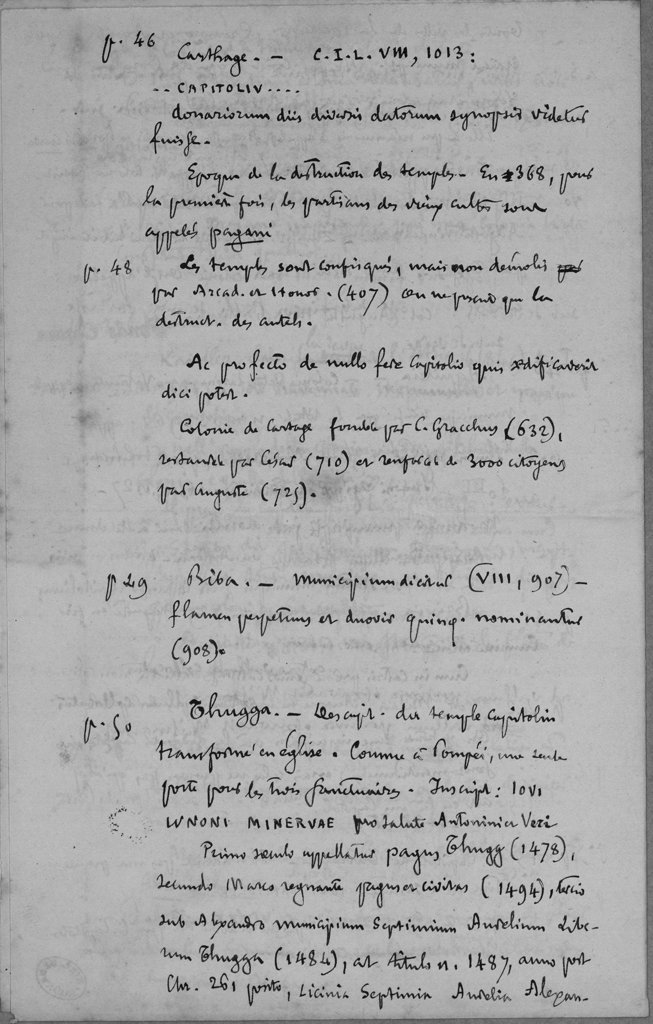 p. 46 Carthage. — C.I.L. VIII, 1013:
-- CAPITOLIV ----
donariorum diis diversis datorum synopsis videtur
fuisse.
Epoque de la destruction des temples - En 368, pour
la première fois, les partisans des vieux cultes sont
appelés pagani
p. 48 Les temples sont confisqués, mais non démolis
par Arcad. et Honor. (407) on ne prescrit que la
destruct. des autels.
Ac profecto de nullo fere Capitolio quis ædificaverit
dici potest.
Colonie de Cartage fondée par C. Gracchus (632),
restaurée par César (710) et renforcée de 3000 citoyens
par Auguste (725).
p 49 Biba. — Municipium dicitur (VIII, 907) —
flamen perpetuus et duovir quinq. nominantur
(908).
p. 50 Thugga. — Descript. du temple Capitolin
transformé en église. Comme à Pompéi, une seule
porte pour les trois sanctuaires. Inscript: IOVI
IVNONI MINERVAE pro salute Antonini et Veri
Primo sæculo appellatur pagus Thugg (1478),
secundo Marco regnante pagus et civitas (1494), tertio
sub Alexandro municipium Septimium Aurelium Libe-
rum Thugga (1484), at titulo n. 1487, anno post
Chr. 261 posito, Licinia Septimia Aurelia Alexan-